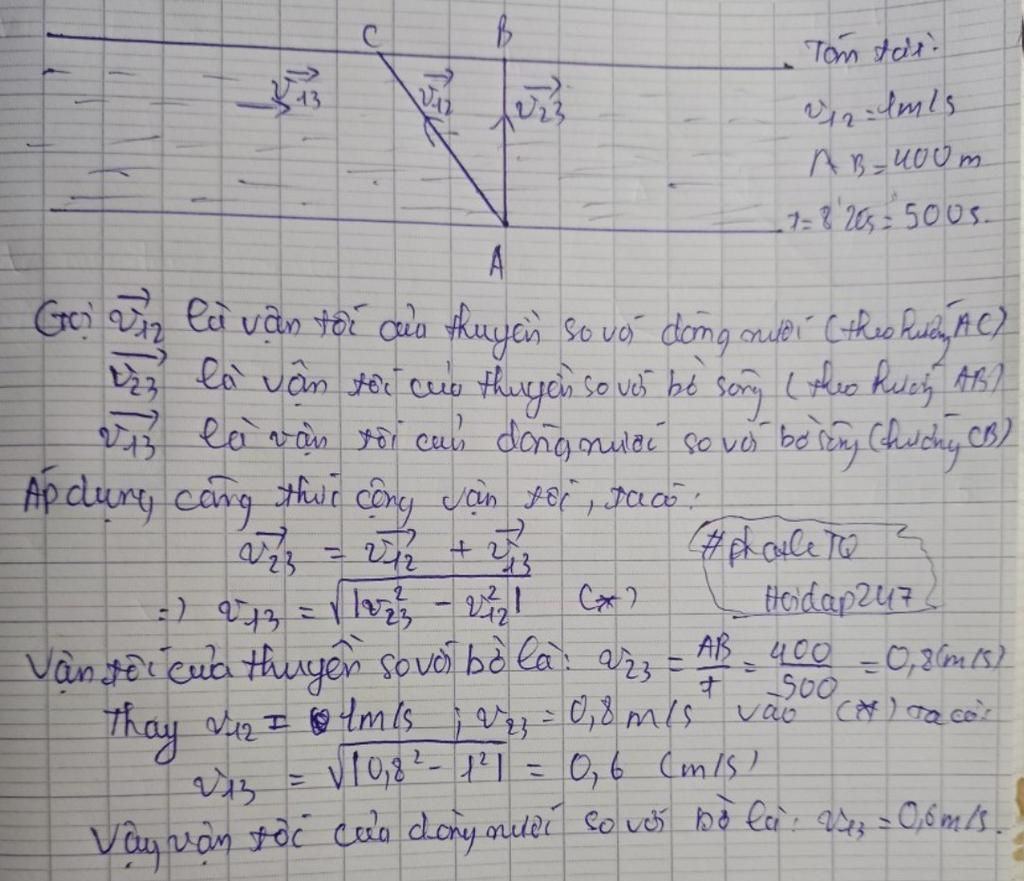 C B
Tóm tắt:
v₁₃ v₁₂ v₂₃
v₁₂ = 1m/s
AB = 400m
t = 8'20s = 500s.
A
Gọi v₁₂ là vận tốc của thuyền so với dòng nước (theo hướng AC)
v₂₃ là vận tốc của thuyền so với bờ sông (theo hướng AB)
v₁₃ là vận tốc của dòng nước so với bờ sông (hướng CB)
Áp dụng công thức cộng vận tốc, ta có:
v₂₃ = v₁₂ + v₁₃
#phatleTQ
Hoidap247
=) v₁₃ = √|v₂₃² - v₁₂²| (*)
Vận tốc của thuyền so với bờ là: v₂₃ = AB/t = 400/500 = 0,8(m/s)
Thay v₁₂ = 1m/s ; v₂₃ = 0,8m/s vào (*) ta có:
v₁₃ = √|0,8² - 1²| = 0,6 (m/s)
Vậy vận tốc của dòng nước so với bờ là: v₁₃ = 0,6m/s.